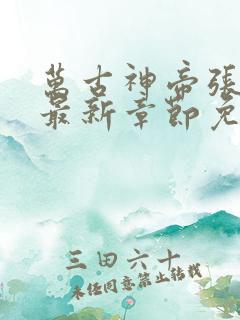 萬古神帝張
最新章節免
三田六十
未經同意禁止轉載